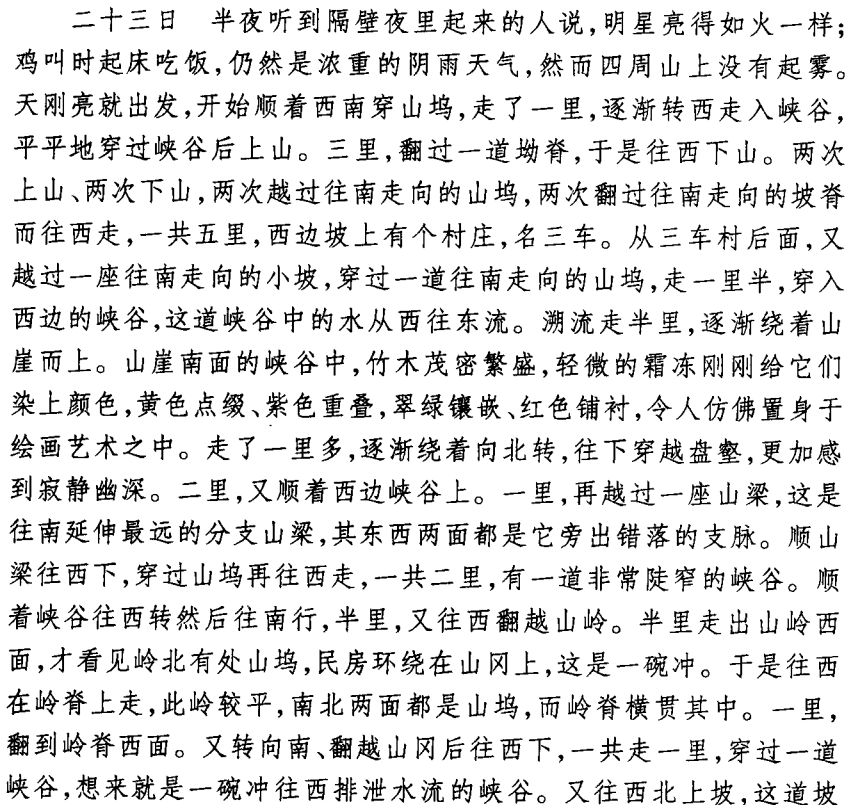 二十三日　半夜听到隔壁夜里起来的人说,明星亮得如火一样;
鸡叫时起床吃饭,仍然是浓重的阴雨天气,然而四周山上没有起雾。
天刚亮就出发,开始顺着西南穿山坞,走了一里,逐渐转西走入峡谷,
平平地穿过峡谷后上山。三里,翻过一道坳脊,于是往西下山。两次
上山、两次下山,两次越过往南走向的山坞,两次翻过往南走向的坡脊
而往西走,一共五里,西边坡上有个村庄,名三车。从三车村后面,又
越过一座往南走向的小坡,穿过一道往南走向的山坞,走一里半,穿入
西边的峡谷,这道峡谷中的水从西往东流。溯流走半里,逐渐绕着山
崖而上。山崖南面的峡谷中,竹木茂密繁盛,轻微的霜冻刚刚给它们
染上颜色,黄色点缀、紫色重叠,翠绿镶嵌、红色铺衬,令人仿佛置身于
绘画艺术之中。走了一里多,逐渐绕着向北转,往下穿越盘壑,更加感
到寂静幽深。二里,又顺着西边峡谷上。一里,再越过一座山梁,这是
往南延伸最远的分支山梁,其东西两面都是它旁出错落的支脉。顺山
梁往西下,穿过山坞再往西走,一共二里,有一道非常陡窄的峡谷。顺
着峡谷往西转然后往南行,半里,又往西翻越山岭。半里走出山岭西
面,才看见岭北有处山坞,民房环绕在山冈上,这是一碗冲。于是往西
在岭脊上走,此岭较平,南北两面都是山坞,而岭脊横贯其中。一里,
翻到岭脊西面。又转向南、翻越山冈后往西下,一共走一里,穿过一道
峡谷,想来就是一碗冲往西排泄水流的峡谷。又往西北上坡,这道坡